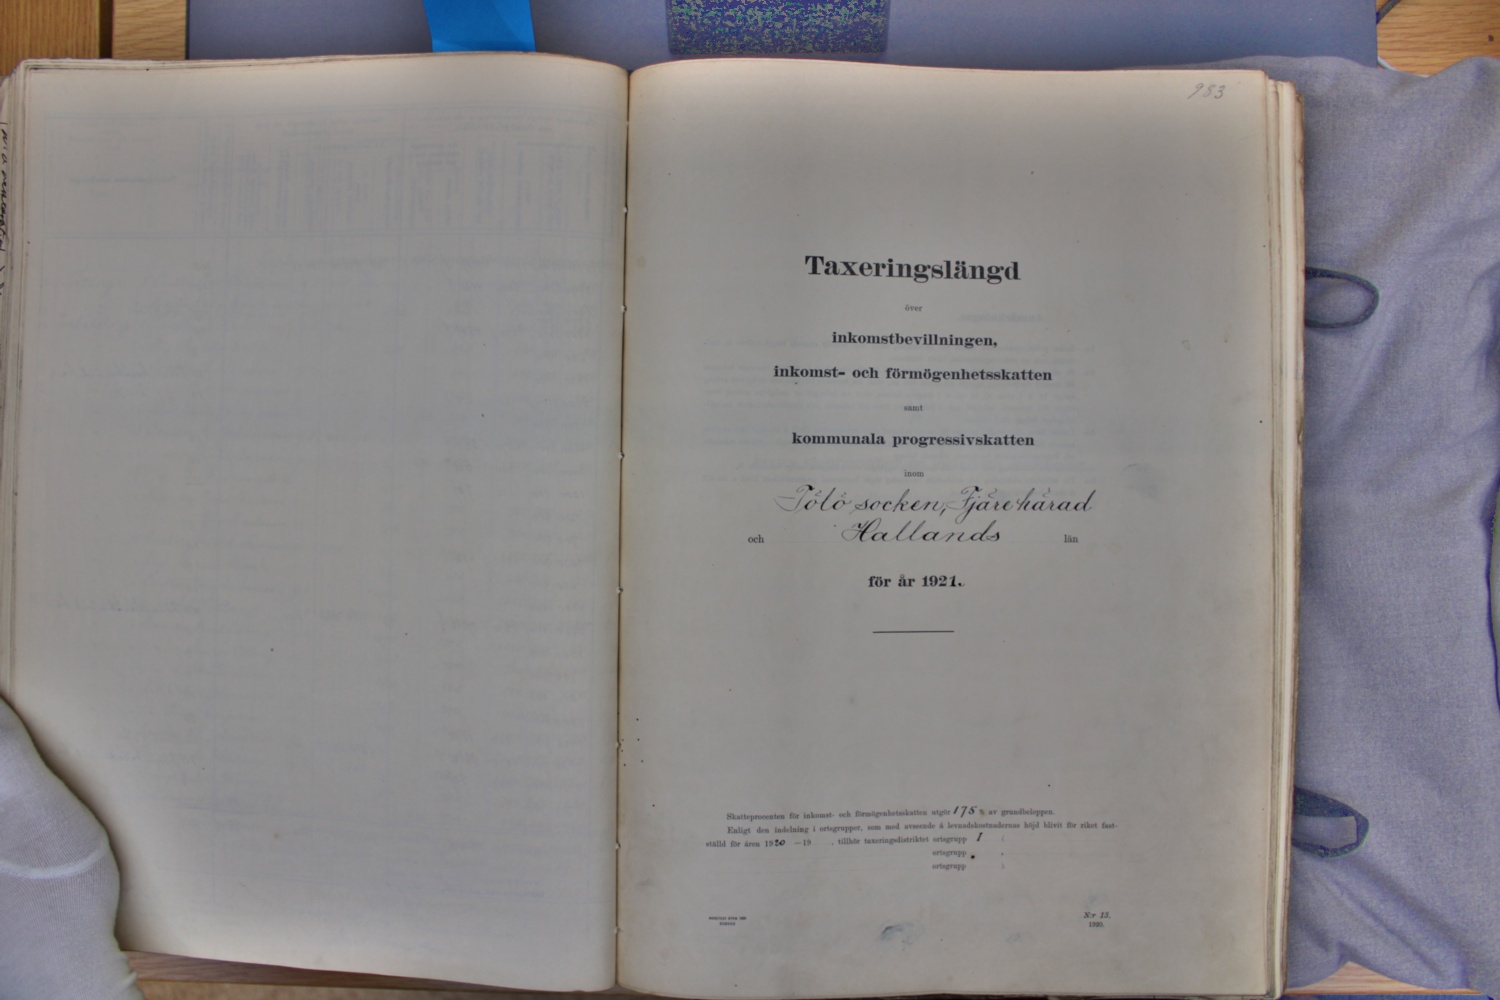 983
Taxeringslängd
över
inkomstbevillningen,
inkomst- och förmögenhetsskatten
samt
kommunala progressivskatten
inom
Tölö socken, Fjäre härad
och Hallands län
för år 1921.
Skatteprocenten för inkomst- och förmögenhetsskatten utgör 175 % av grundbeloppen.
Enligt den indelning i ortsgrupper, som med avseende å levnadskostnadernas höjd blivit för riket fast-
ställd för åren 1920 —19 , tillhör taxeringsdistriktet ortsgrupp 1
ortsgrupp
ortsgrupp
N:r 13.
1920.